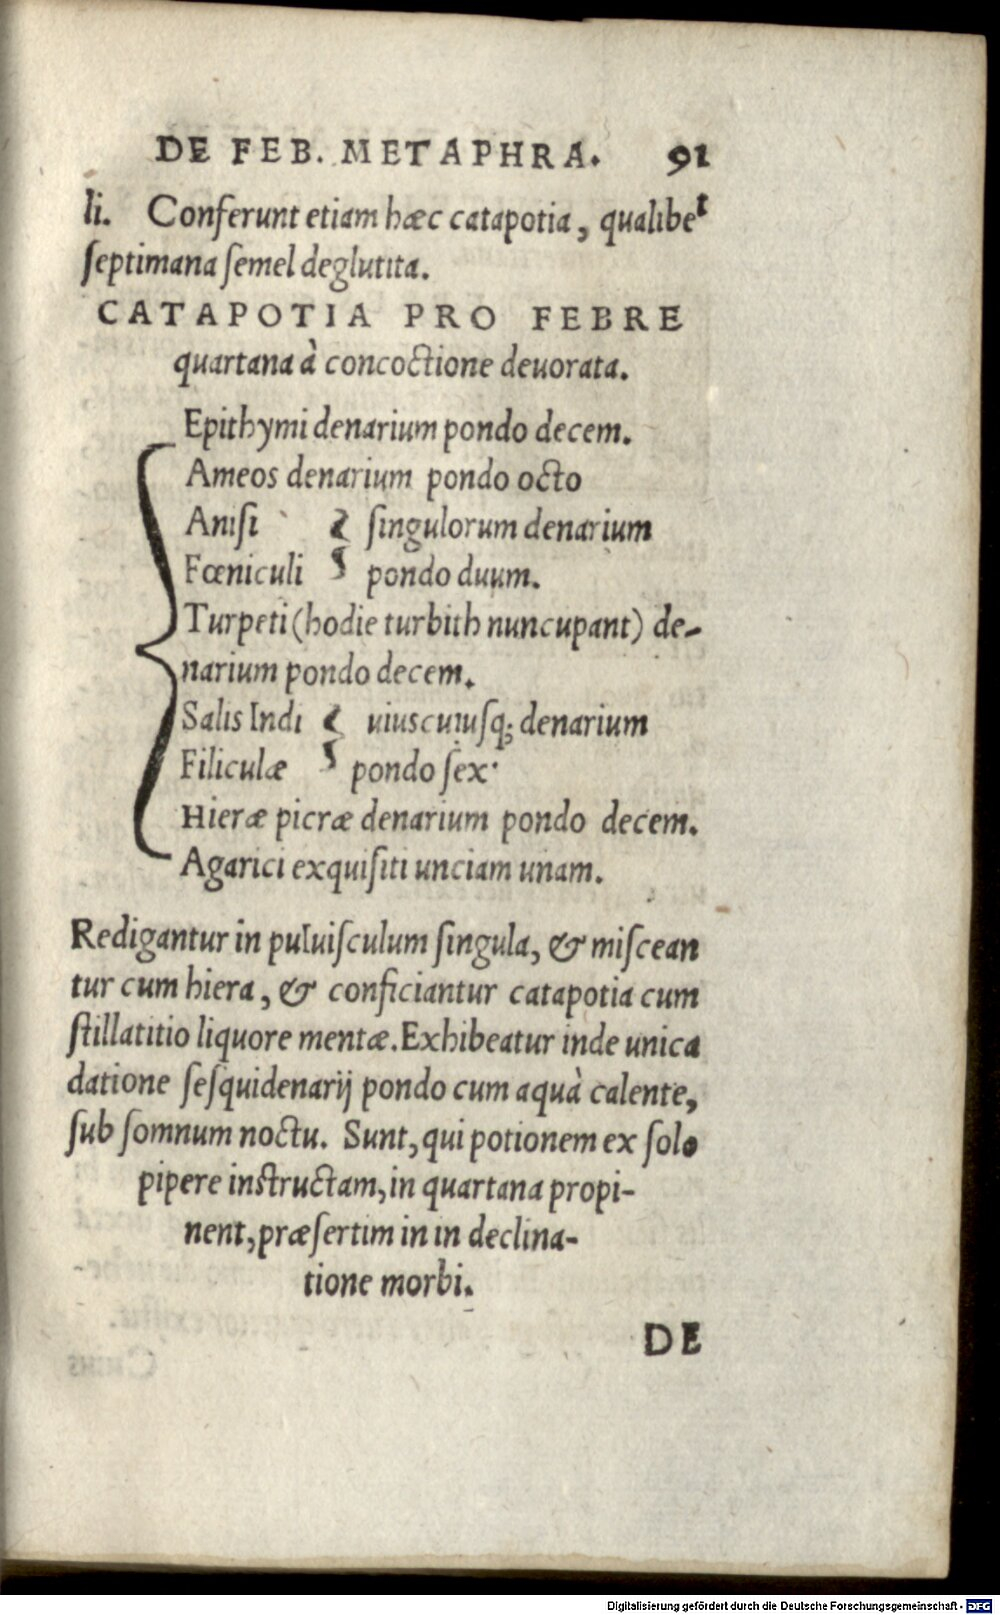 DE FEB. METAPHRA. 91
li. Conferunt etiam hæc catapotia, qualibet
ſeptimana ſemel deglutita.
CATAPOTIA PRO FEBRE
quartana à concoctione deuorata.
Epithymi denarium pondo decem.
Ameos denarium pondo octo
Aniſi ſingulorum denarium
Fœniculi pondo duum.
Turpeti (hodie turbith nuncupant) de-
narium pondo decem.
Salis Indi uiuscuiuſq; denarium
Filiculæ pondo ſex.
Hieræ picræ denarium pondo decem.
Agarici exquiſiti unciam unam.
Redigantur in puluiſculum ſingula, & miſcean
tur cum hiera, & conficiantur catapotia cum
ſtillatitio liquore mentæ. Exhibeatur inde unica
datione ſeſquidenarij pondo cum aquà calente,
ſub ſomnum noctu. Sunt, qui potionem ex ſolo
pipere inſtructam, in quartana propi-
nent, præſertim in in declina-
tione morbi.
DE
Digitalisierung gefördert durch die Deutsche Forschungsgemeinschaft - DFG